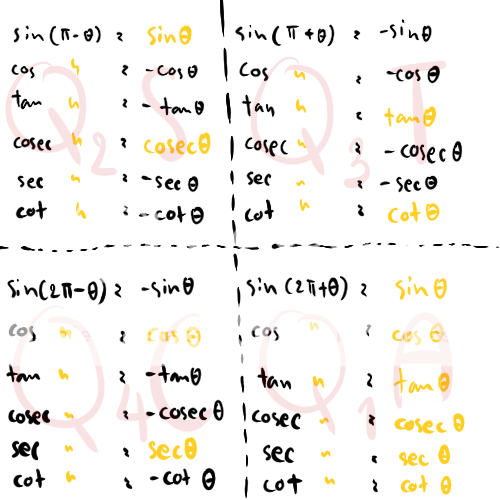 sin(π-θ) = sinθ
cos " = -cosθ
tan " = -tanθ
cosec " = cosecθ
sec " = -secθ
cot " = -cotθ
Q2 S
sin(π+θ) = -sinθ
cos " = -cosθ
tan " = tanθ
cosec " = -cosecθ
sec " = -secθ
cot " = cotθ
Q3 T
sin(2π-θ) = -sinθ
cos " = cosθ
tan " = -tanθ
cosec " = -cosecθ
sec " = secθ
cot " = -cotθ
Q4 C
sin(2π+θ) = sinθ
cos " = cosθ
tan " = tanθ
cosec " = cosecθ
sec " = secθ
cot " = cotθ
Q1 A